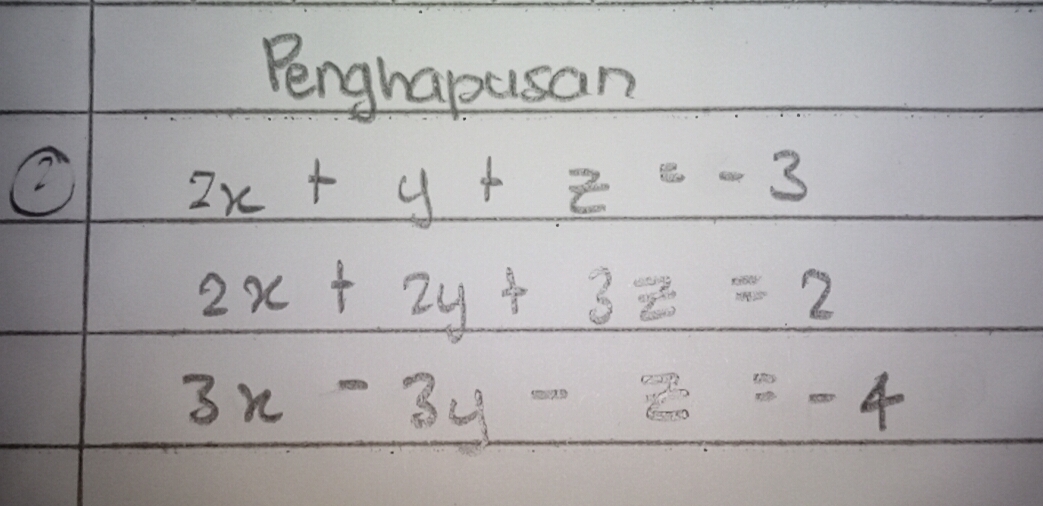 Penghapusan
② 2x + y + z = -3
2x + 2y + 3z = 2
3x - 3y - z = -4